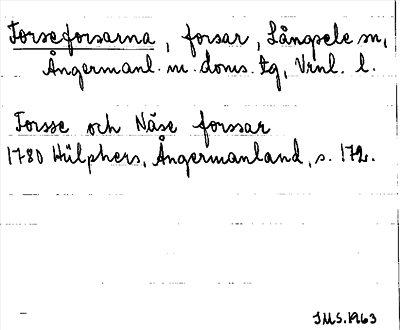 Forseforsarna, forsar, Långsele sn,
Ångermanl. m. doms. tg, Vrnl. l.
Forsse och Näse forssar
1780 Hülphers, Ångermanland, s. 172.
JMS.1963